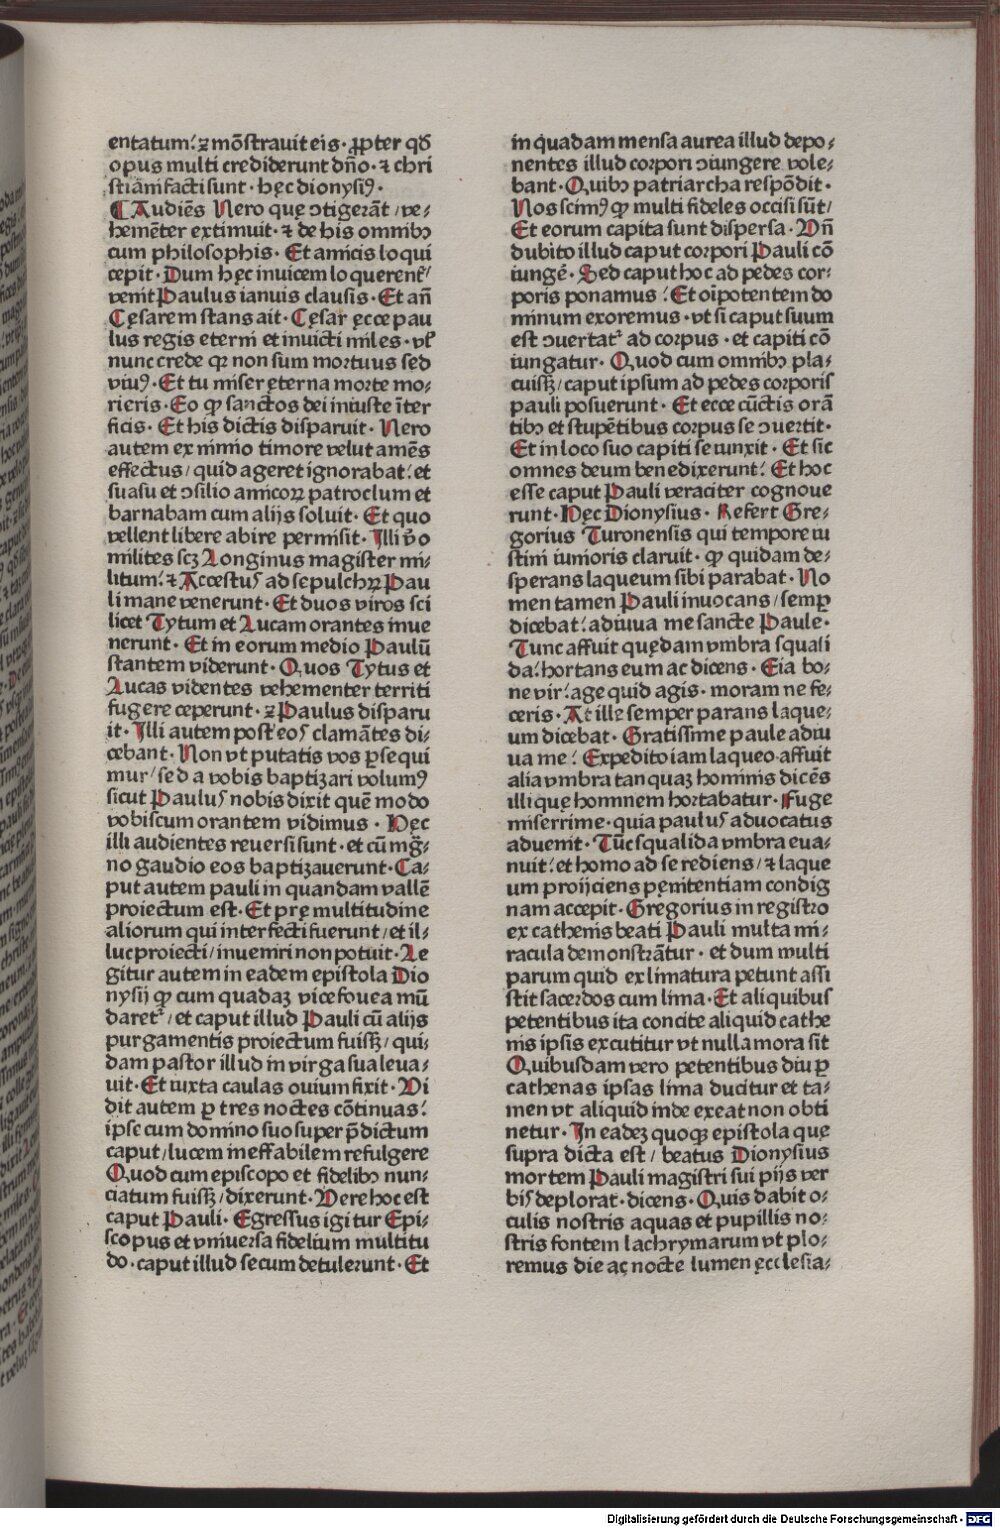 entatum: ⁊ mõstrauit eis· ꝓpter qđ
opus multi crediderunt dño· ⁊ chri
stiãni facti sunt· hęc dionysiꝰ·
¶ Audiẽs Nero quę ↄtigerãt / ve⸗
hemẽter extimuit· ⁊ de his omnibꝫ
cum philosophis· Et amicis loqui
cepit· Dum hęc inuicem loquerent᷑ /
venit Paulus ianuis clausis· Et añ
Cęsarem stans ait· Cęsar ęcce pau
lus regis eterni et inuicti miles· vl᷑
nunc crede qꝫ non sum mortuus sed
viuꝰ· Et tu miser ęterna morte mo⸗
rieris· Eo ꝙ sanctos dei iniuste ĩter
ficis· Et his dictis disparuit· Nero
autem ex nimio timore velut amẽs
effectus / quid ageret ignorabat: et
suasu et ↄsilio amicoꝝ patroclum et
barnabam cum alijs soluit· Et quo
vellent libere abire permisit· Illi v̾o
milites scꝫ Longinus magister mi⸗
litum: ⁊ Accestuſ ad sepulchꝝ Pau
li mane venerunt· Et duos viros sci
licet Tytum et Lucam orantes inue
nerunt· Et in eorum medio Paulũ
stantem viderunt· Quos Tytus et
Lucas videntes vehementer territi
fugere ceperunt· ⁊ Paulus disparu
it· Illi autem post eoſ clamãtes di⸗
cebant· Non vt putatis vos ꝑsequi
mur / sed a vobis baptizari volumꝰ
sicut Pauluſ nobis dixit quẽ modo
vobiscum orantem vidimus· Hęc
illi audientes reuersi sunt· et cũ mg̃⸗
no gaudio eos baptizauerunt· Ca⸗
put autem pauli in quandam vallẽ
proiectum est· Et prę multitudine
aliorum qui interfecti fuerunt / et il⸗
luc proiecti / inueniri non potuit· Le
gitur autem in eadem epistola Dio
nysij ꝙ cum quadaꝫ vice fouea mũ
daret᷑ / et caput illud Pauli cũ alijs
purgamentis proiectum fuisꝫ / qui⸗
dam pastor illud in virga sua leua⸗
uit· Et iuxta caulas ouium fixit· Vi
dit autem ꝑ tres noctes cõtinuas:
ipse cum domino suo super p̄dictum
caput / lucem ineffabilem refulgere
Quod cum episcopo et fidelibꝫ nun⸗
ciatum fuisꝫ / dixerunt· Vere hoc est
caput Pauli· Egressus igitur Epi⸗
scopus et vniuersa fidelium multitu
do· caput illud secum detulerunt· Et
in quadam mensa aurea illud depo⸗
nentes illud corpori ↄiungere vole⸗
bant· Quibꝫ patriarcha respõdit·
Nos scimꝰ ꝙ multi fideles occisi sũt /
Et eorum capita sunt dispersa· Vñ
dubito illud caput corpori Pauli cõ
iungẽ· Sed caput hoc ad pedes cor⸗
poris ponamus: Et oĩpotentem do
minum exoremus· vt si caput suum
est ↄuertat᷑ ad corpus· et capiti cõ
iungatur· Quod cum omnibꝫ pla⸗
cuisꝫ / caput ipsum ad pedes corporis
pauli posuerunt· Et ecce cũctis orã
tibꝫ et stupẽtibus corpus se ↄuertit·
Et in loco suo capiti se iunxit· Et sic
omnes deum benedixerunt: Et hoc
esse caput Pauli veraciter cognoue
runt· Hęc Dionysius· Refert Gre⸗
gorius Turonensis qui tempore iu
stini iunioris claruit· ꝙ quidam de⸗
sperans laqueum sibi parabat· No
men tamen Pauli inuocans / semꝑ
dicebat: adiuua me sancte Paule·
Tunc affuit quędam vmbra squali
da: hortans eum ac dicens· Eia bo⸗
ne vir: age quid agis· moram ne fe⸗
ceris· At ille semper parans laque⸗
um dicebat· Gratissime paule adiu
ua me: Expedito iam laqueo· affuit
alia vmbra tanquaꝫ hominis dicẽs
illi quę hominem hortabatur· Fuge
miserrime· quia pauluſ aduocatus
aduenit· Tũc squalida vmbra eua⸗
nuit: et homo ad se rediens / ⁊ laque
um proijciens pęnitentiam condig
nam accepit· Gregorius in registro
ex cathenis beati Pauli multa mi⸗
racula demonstrãtur· et dum multi
parum quid ex limatura petunt assi
stit sacerdos cum lima· Et aliquibus
petentibus ita concite aliquid cathe
nis ipsis excutitur vt nulla mora sit
Quibusdam vero petentibus diu ꝑ
cathenas ipsas lima ducitur et ta⸗
men vt aliquid inde exeat non obti
netur· In eadeꝫ quoqꝫ epistola quę
supra dicta est / beatus Dionysius
mortem Pauli magistri sui pijs ver
biſ deplorat· dicens· Quis dabit o⸗
culis nostris aquas et pupillis no⸗
stris fontem lachrymarum vt plo⸗
remus die ac nocte lumen ęcclesia⸗
Digitalisierung gefördert durch die Deutsche Forschungsgemeinschaft - DFG